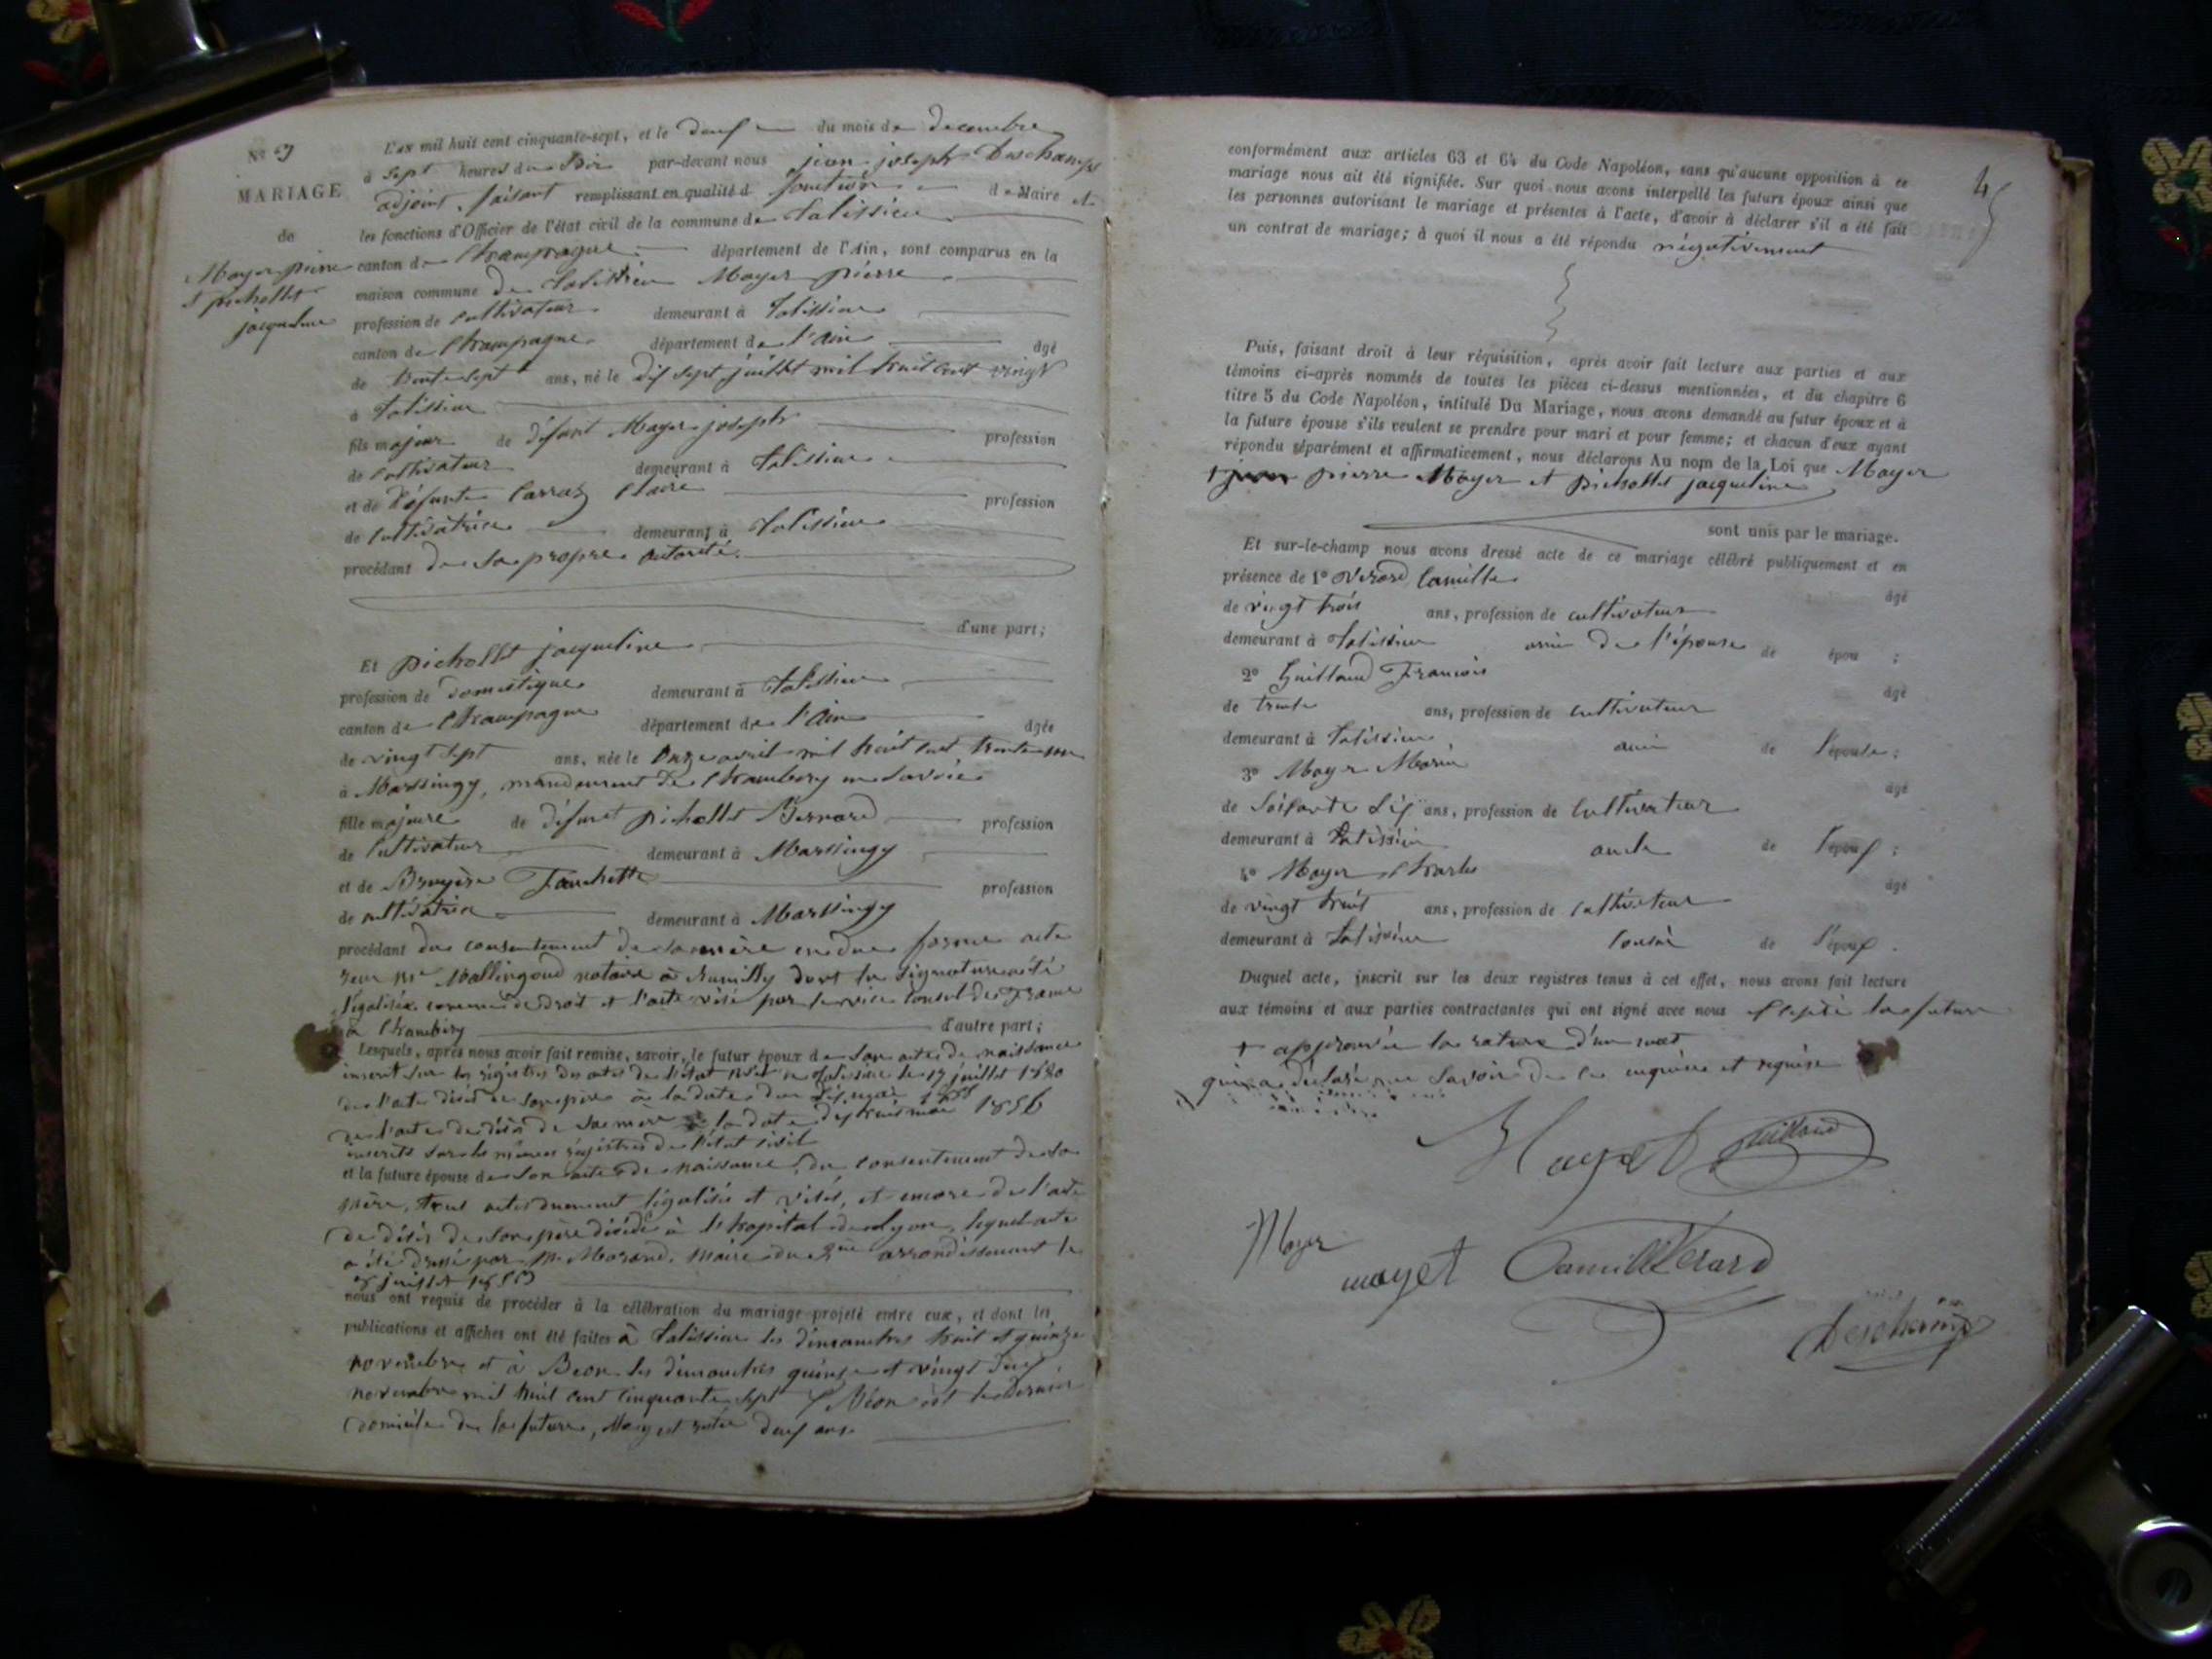 L'an mil huit cent cinquante-sept, et le deux du mois de decembre
à sept heures du Soir par-devant nous jean joseph Deschamps
adjoint, faisant remplissant en qualité d fonction de Maire et
les fonctions d'Officier de l'état civil de la commune de talissieu
canton de Champagne département de l'Ain, sont comparus en la
maison commune de talissieu Mayer pierre
profession de cultivateur demeurant à Talissieu
canton de Champagne département de l'ain âgé
de trente sept ans, né le dix sept juillet mil huit cent vingt
à talissieu
fils majeur de défunt Mayer joseph profession
de cultivateur demeurant à talissieu
et de défunte Carraz Claire profession
de cultivatrice demeurant à talissieu
procédant de sa propre autorité.
d'une part;
Et pichollet jacqueline
profession de domestique demeurant à talissieu
canton de Champagne département de l'ain âgée
de vingt sept ans, née le onze avril mil huit cent trente
à Marssingy, mandement de Chambery en Savoie
fille majeure de défunt pichollet Bernard profession
de cultivateur demeurant à Marssingy
et de Bruyère Fanchette profession
de cultivatrice demeurant à Marssingy
procédant du consentement de sa mère en due forme acte
reçu Me Mallingoud notaire à rumilly dont la signature a été
légalisée comme de droit et l'acte visé par le vice Consul de France
à Chambéry d'autre part;
Lesquels, après nous avoir fait remise, savoir, le futur époux de son acte de naissance
inscrit sur les régistres des actes de l'état civil de talissieu le 17 juillet 1820
de l'acte décès de son père à la date du
de l'acte de décès de sa mère la date du mai 1856
inscrits sur les mêmes régistres de l'état civil
et la future épouse de son acte de naissance, du consentement de sa
mère, tous actes duement légalisés et visés, et encore de l'acte
de décès de son père décédé à l'hopital de Lyon, lequel acte
a été dressé par Mr Morand, maire du 2me arrondissement le
juillet
nous ont requis de procéder à la célébration du mariage projeté entre eux, et dont les
publications et affiches ont été faites à talissieu les dimanches huit et quinze
novembre et à Beon les dimanches quinze et vingt deux
novembre mil huit cent cinquante sept Béon est le dernier
domicile de la future, deux ans
N°
MARIAGE
de
Mayer pierre
et pichollet
jacqueline
conformément aux articles 63 et 64 du Code Napoléon, sans qu'aucune opposition à ce
mariage nous ait été signifiée. Sur quoi nous avons interpellé les futurs époux ainsi que
les personnes autorisant le mariage et présentes à l'acte, d'avoir à déclarer s'il a été fait
un contrat de mariage; à quoi il nous a été répondu négativement
Puis, faisant droit à leur réquisition, après avoir fait lecture aux parties et aux
témoins ci-après nommés de toutes les pièces ci-dessus mentionnées, et du chapitre 6
titre 5 du Code Napoléon, intitulé Du Mariage, nous avons demandé au futur époux et à
la future épouse s'ils veulent se prendre pour mari et pour femme; et chacun d'eux ayant
répondu séparément et affirmativement, nous déclarons Au nom de la Loi que Mayer
pierre Mayer et pichollet jacqueline
sont unis par le mariage.
Et sur-le-champ nous avons dressé acte de ce mariage célébré publiquement et en
présence de 1° Verard Camille âgé
de vingt trois ans, profession de cultivateur
demeurant à talissieu ami de l'épouse de épou ;
2° Guilland François âgé
de trente ans, profession de cultivateur
demeurant à talissieu ami de l'épouse;
3° Mayer Marin âgé
de soixante dix ans, profession de cultivateur
demeurant à talissieu oncle de l'époux;
4° Mayer Charles âgé
de vingt huit ans, profession de cultivateur
demeurant à talissieu cousin de l'époux.
Duquel acte, inscrit sur les deux registres tenus à cet effet, nous avons fait lecture
aux témoins et aux parties contractantes qui ont signé avec nous excepté la future
+ approuvée la rature d'un mot
qui a déclaré ne savoir de ce enquise et requise
Mayet Guilland
Mayer
mayet Camille Verard
Deschamps